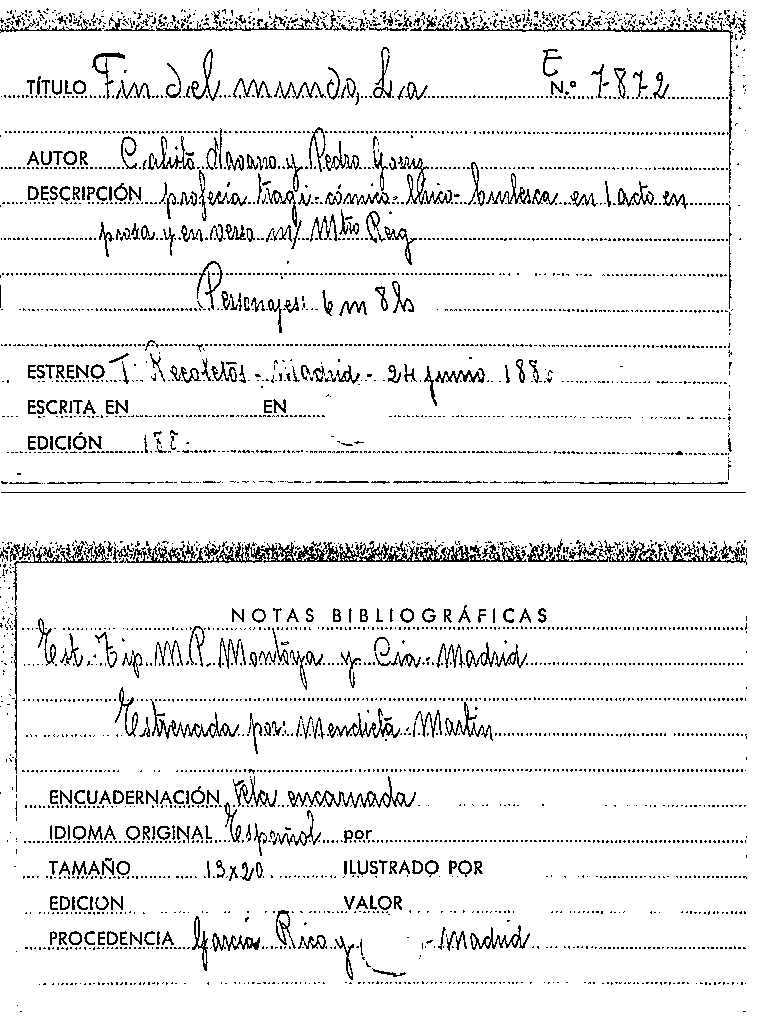 E
TÍTULO Fin del mundo, La N.º 7-872
AUTOR Calisto Navarro y Pedro Gorriz
DESCRIPCIÓN profecia tragi-cómico-lírico-burlesca en 1 acto en
prosa y en verso m/ Mtro Reig
Personajes: 6 m 8 h
ESTRENO T. Recoletos - Madrid - 24 junio 188
ESCRITA EN EN
EDICIÓN 188
NOTAS BIBLIOGRÁFICAS
Est. Tip. M.P. Montoya y Cia - Madrid
Estrenada por: Mendieta - Martin
ENCUADERNACIÓN tela encarnada
IDIOMA ORIGINAL Español por
TAMAÑO 13x20 ILUSTRADO POR
EDICION VALOR
PROCEDENCIA Garcia Rico y - Madrid